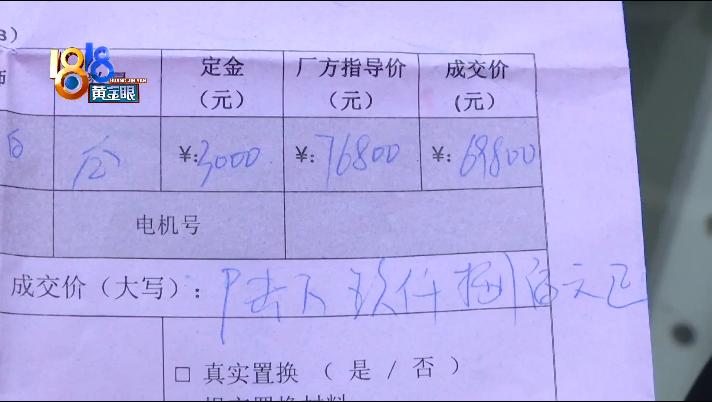 1818
HUANG JIN YAN
黄金眼
定金
（元）
厂方指导价
（元）
成交价
（元）
白
¥：3000
¥：76800
¥：69800
电机号
成交价（大写）：陆万玖仟捌佰元已
□ 真实置换 （ 是 / 否 ）